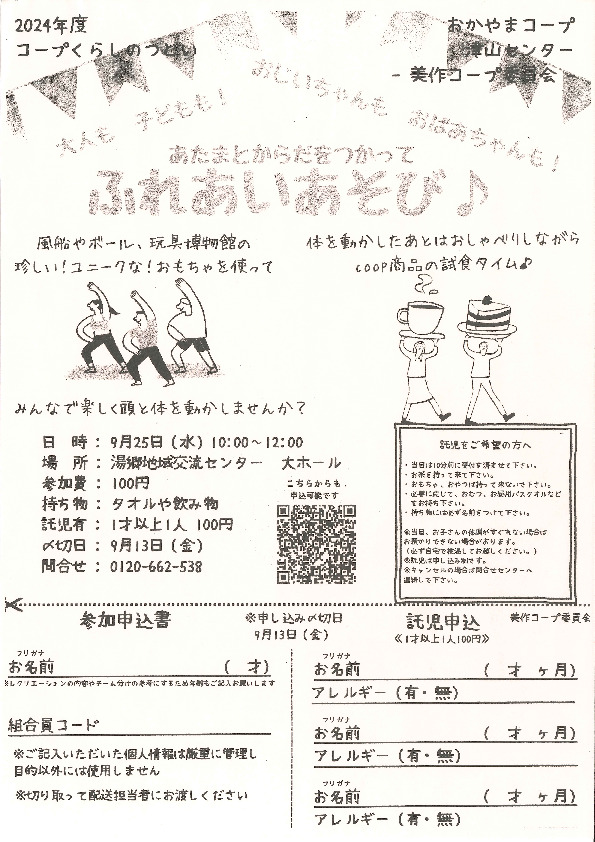 2024年度
コープくらしのつどい
おかやまコープ
津山センター
美作コープ委員会
大人も 子どもも! おじいちゃんも おばあちゃんも!
あたまとからだをつかって
ふれあいあそび♪
風船やボール、玩具博物館の
珍しい!ユニークな!おもちゃを使って
体を動かしたあとはおしゃべりしながら
COOP商品の試食タイム♪
みんなで楽しく頭と体を動かしませんか?
日 時: 9月25日(水)10:00~12:00
場 所: 湯郷地域交流センター 大ホール
参加費: 100円
持ち物: タオルや飲み物
託児有: 1才以上1人 100円
〆切日: 9月13日(金)
問合せ: 0120-662-538
こちらからも、
申込可能です
託児をご希望の方へ
・当日は10分前に受付を済ませて下さい。
・お茶を持って来て下さい。
・おもちゃ、おやつは持って来ないで下さい。
・必要に応じて、おむつ、お昼用バスタオルなど
でお持ち下さい。
・持ち物には必ず名前をつけて下さい。
※当日、お子さんの体調がすぐれない場合は
お預かりできない場合があります。
(必ず自宅で検温してお越しください。)
※託児は申し込み制です。
※キャンセルの場合は問合せセンターへ
連絡して下さい。
参加申込書
※申し込み〆切日
9月13日(金)
フリガナ
お名前 ( 才)
※レクリエーションの内容やチーム分けの参考にするため年齢もご記入お願いします
組合員コード
※ご記入いただいた個人情報は厳重に管理し
目的以外には使用しません
※切り取って配送担当者にお渡しください
託児申込
《1才以上1人100円》
美作コープ委員会
フリガナ
お名前 ( 才 ヶ月)
アレルギー(有・無)
フリガナ
お名前 ( 才 ヶ月)
アレルギー(有・無)
フリガナ
お名前 ( 才 ヶ月)
アレルギー(有・無)